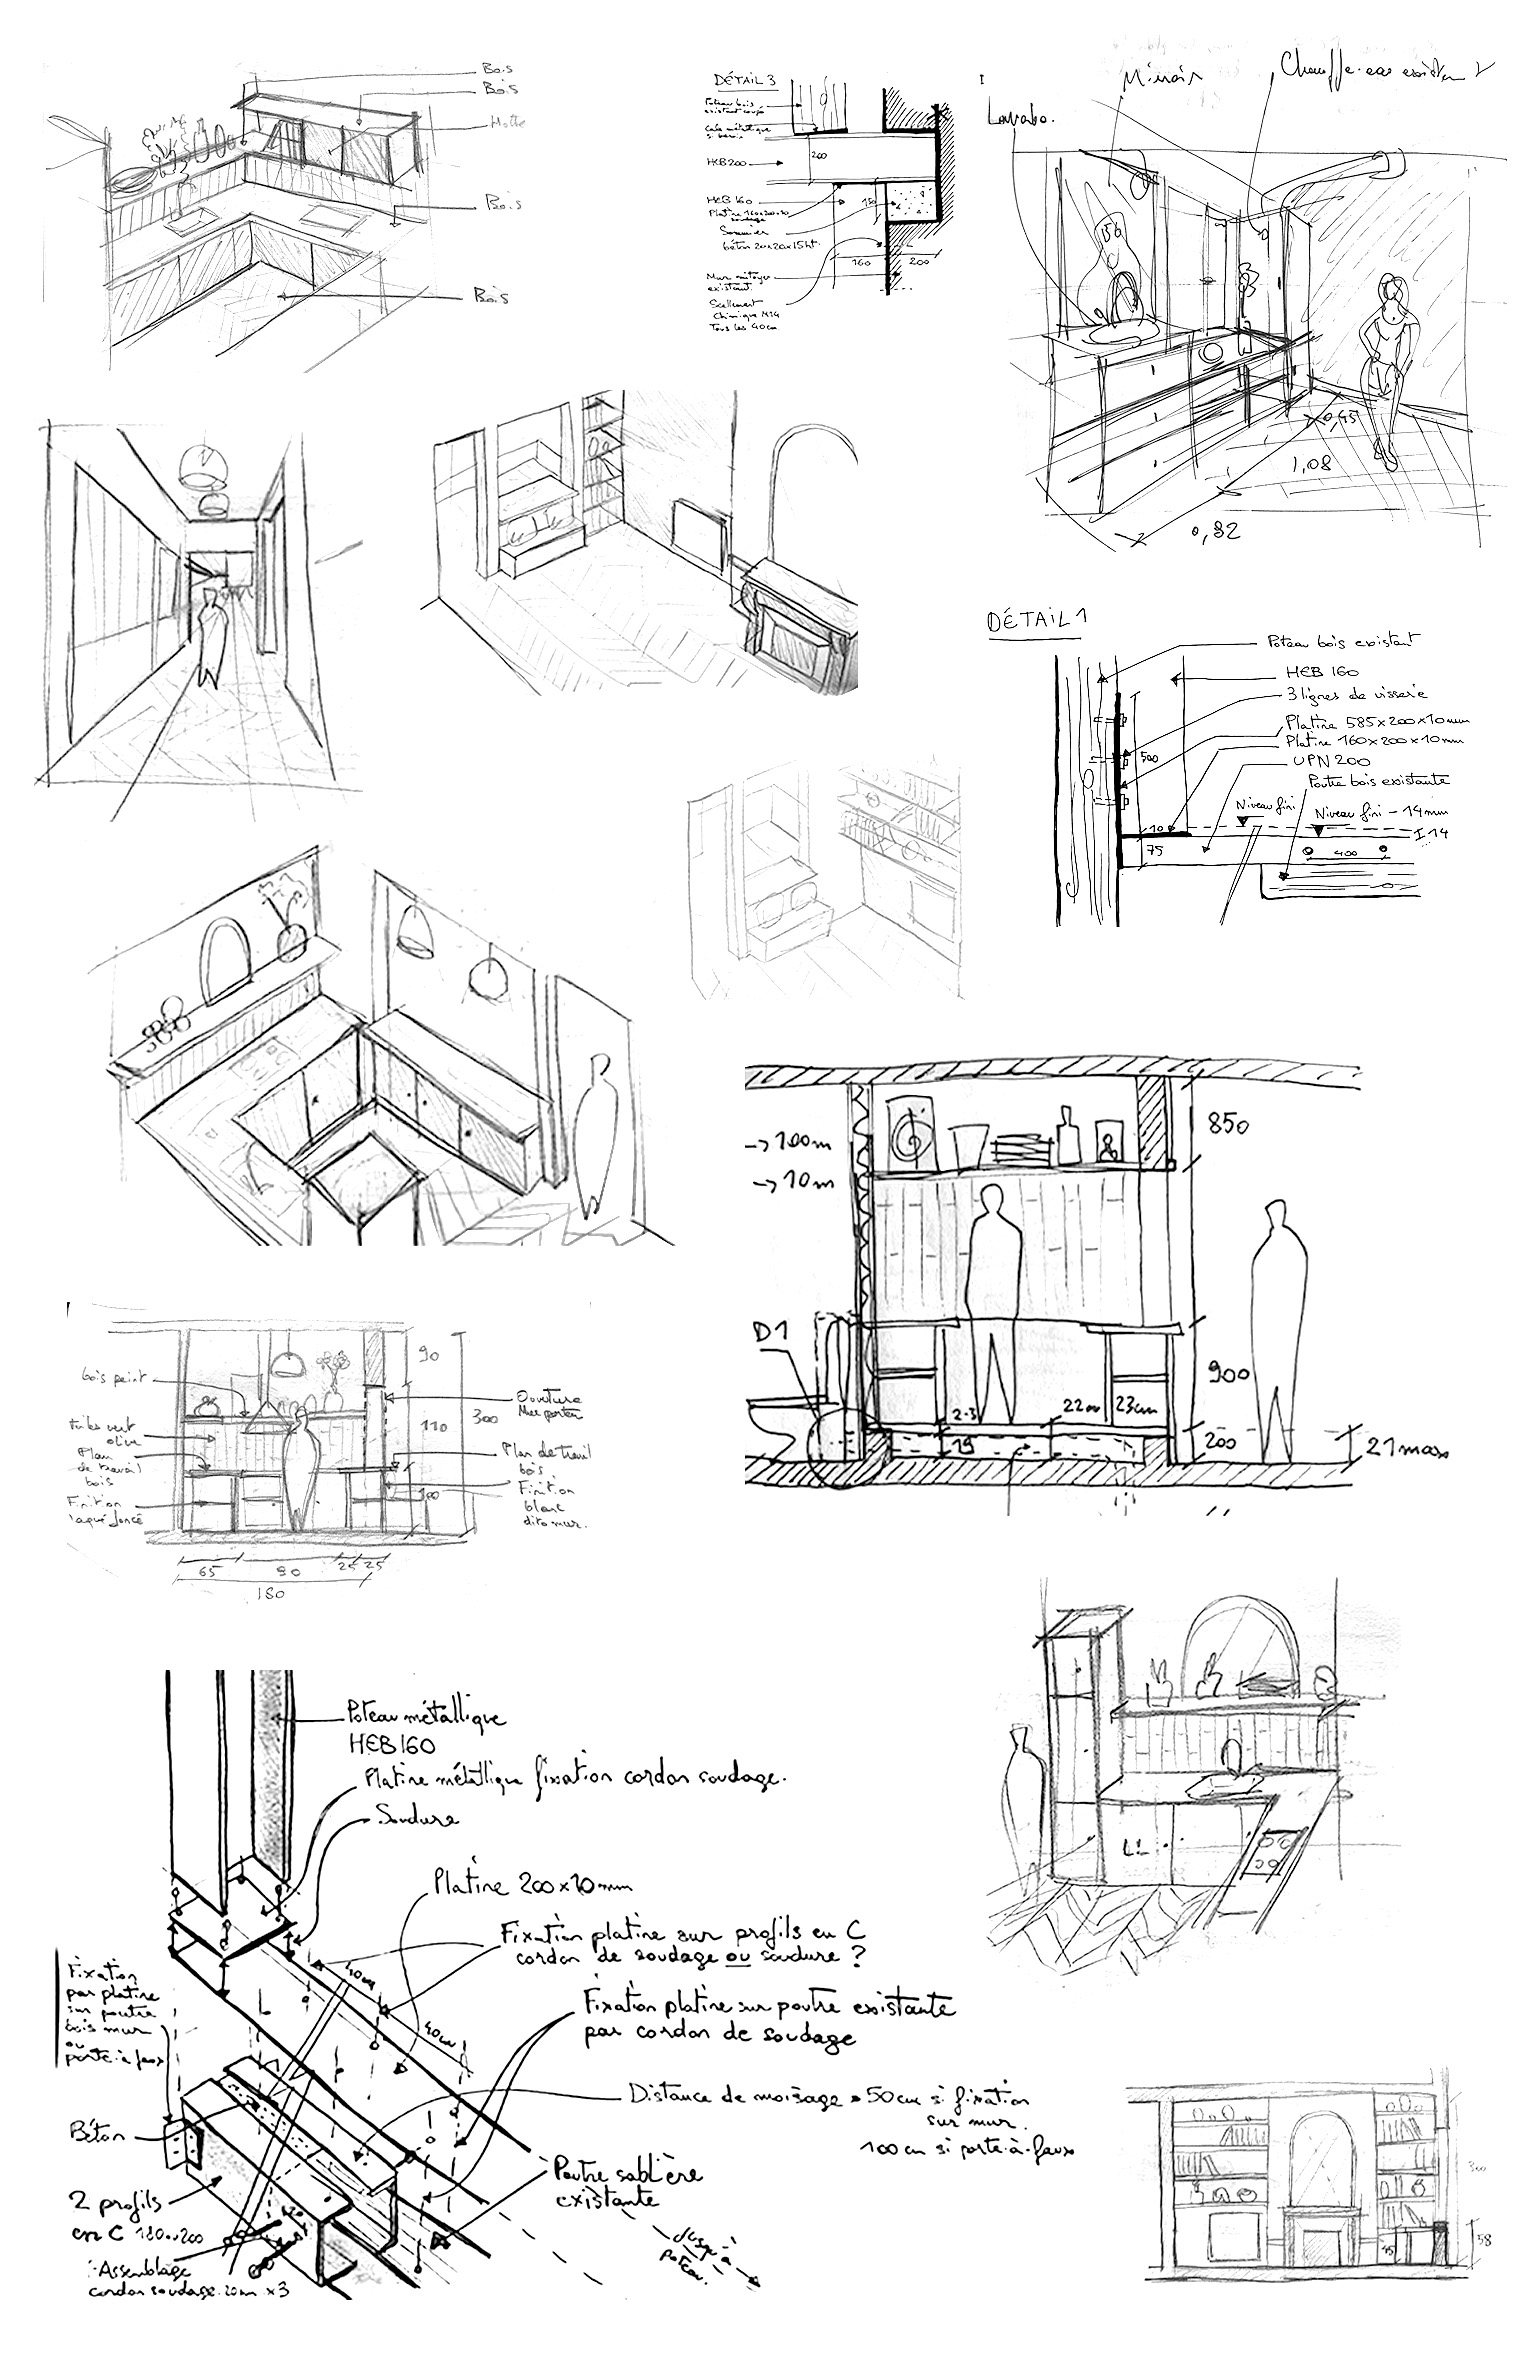 Bois
Bois
Hotte
Bois
Bois
DÉTAIL 3
Poteau bois
existant coupé
Cale métallique
si besoin
HEB 200
200
HEB 160
Platine 160x200x10
soudage
Sommier
béton 20x20x15ht.
150
160
200
Mur mitoyen
existant.
Scellement
Chimique M14
Tous les 40cm
Lavabo.
Miroir
Chauffe-eau existant
0,45
1,08
0,82
DÉTAIL 1
Poteau bois existant
HEB 160
3 lignes de visserie
Platine 585x200x10mm
Platine 160x200x10mm
UPN 200
Poutre bois existante
Niveau fini
Niveau fini - 14mm
500
10
75
14
400
850
-> 100m
-> 10m
D1
900
2.3
22cm
23cm
19
200
21max
bois peint
tuiles vert
olive
Plan
de travail
bois
Finition
laqué foncé
90
110
300
100
Ouverture
Mur porteur
Plan de travail
bois
Finition
blanc
dito mur.
65
90
25
25
180
Poteau métallique
HEB 160
Platine métallique fixation cordon soudage.
Soudure
Platine 200x10mm
Fixation platine sur profils en C
cordon de soudage ou soudure ?
40cm
40cm
Fixation
par platine
sur poutre
bois mur
ou
porte-à-faux
Fixation platine sur poutre existante
par cordon de soudage
Distance de moisage = 50cm si fixation
sur mur.
100cm si porte-à-faux
Béton
2 profils
en C 180x200
Poutre sablière
existante
Jusqu'à
poteau.
Assemblage
cordon soudage 20cm x3
LL
300
45
58